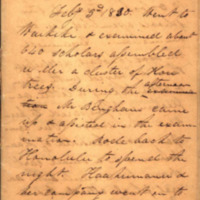 Feb. 3d 1830 Went to
Waikiki & examined about
660 scholars assembled
under a cluster of Kou
trees. During the afternoon
Mr Bingham came
up & assisted in the exami
nation. Rode back to
Honolulu to spend the
night. Kaahumanu &
her company went on to